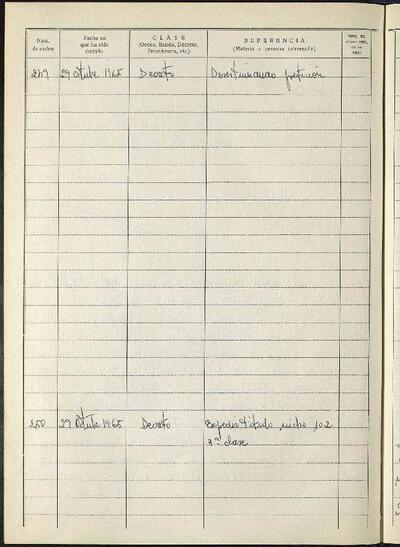 Núm. de orden
Fecha en que ha sido dictado
CLASE
(Orden, Bando, Decreto, Providencia, etc.)
REFERENCIA
(Materia o persona interesada)
249 29 octubre 1965 Decreto Desestimando petición
250 29 octubre 1965 Decreto Expedir título nicho 102
3ª clase